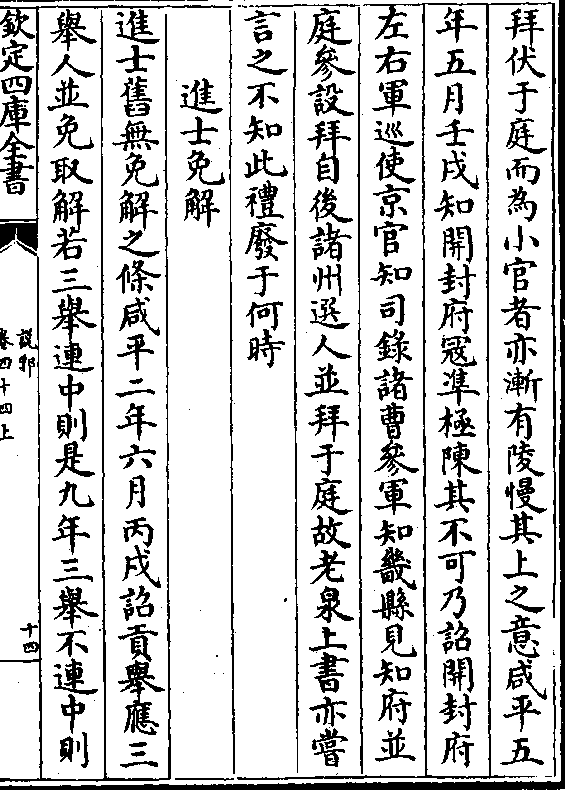 拜伏于庭而為小官者亦漸有陵慢其上之意咸平五
年五月壬戌知開封府寇準極陳其不可乃詔開封府
左右軍巡使京官知司錄諸曹參軍知畿縣見知府並
庭參設拜自後諸州選人並拜于庭故老泉上書亦嘗
言之不知此禮廢于何時
進士免解
進士舊無免解之條咸平二年六月丙戌詔貢舉應三
舉人並免取解若三舉連中則是九年三舉不連中則
欽定四庫全書
說郛
卷四十四上
十四